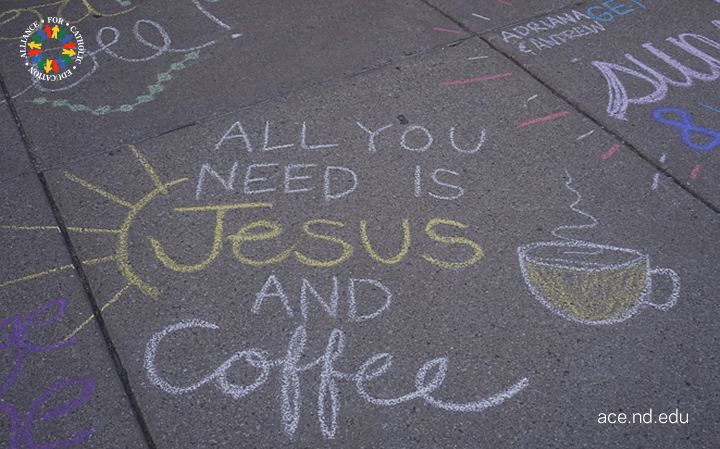 ALLIANCE • FOR • CATHOLIC • EDUCATION •
ADRIANA
& ANDREW
GET
ALL YOU
NEED IS
Jesus
AND
Coffee
ace.nd.edu